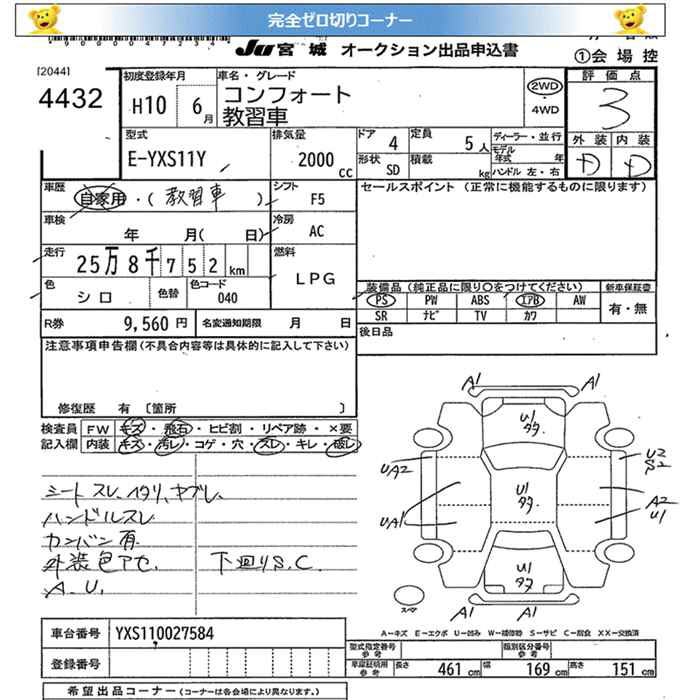 完全ゼロ切りコーナー
JU 宮城 オークション出品申込書 ①会場控
[2044]
4432
初度登録年月 H10 6月
車名・グレード コンフォート
教習車
2WD
・
4WD
評価点
3
外装 内装
D D
型式 E-YXS11Y
排気量 2000 CC
ドア 4
形状 SD
定員 5人
積載 kg
ディーラー・並行
モデル年式 年
ハンドル 左・右
車歴 自家用・(教習車)
シフト F5
セールスポイント (正常に機能するものに限ります)
車検 年 月( 日)
冷房 AC
走行 25万8千752km
燃料 LPG
色 シロ 色替 色コード 040
装備品 (純正品に限り○をつけてください) 新車保証書
PS PW ABS エアB AW 有・無
SR ナビ TV カワ
R券 9,560円 名変通知期限 月 日
後日品
注意事項申告欄(不具合内容等は具体的に記入して下さい)
修復歴 有 〔箇所 〕
検査員 FW キズ・飛石・ヒビ割・リペア跡・×要
記入欄 内装 キズ・汚レ・コゲ・穴・スレ・キレ・破レ
シートスレ、ヘタリ、ヤブレ、
ハンドルスレ
カンバン有
外装色アセ、 下回りS.C.
A.U.
A1 A1
U1
タタ
UA2
U2
S2
UA1
U1
タタ
A2
U1
U1
タタ
A1 A1
スマ
A−キズ E−エクボ U−凹み W−補修跡 S−サビ C−腐食 XX−交換済
車台番号 YXS110027584
登録番号
型式指定番号 参考 類別区分番号 参考
車庫証明用 参考 長さ 461cm 幅 169cm 高さ 151cm
希望出品コーナー (コーナーは各会場により異なります。)